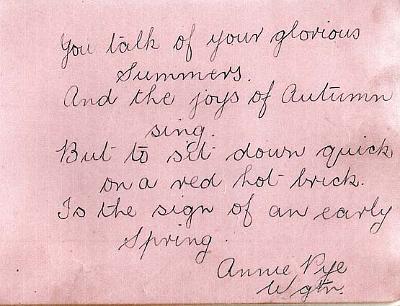 You talk of your glorious
Summers.
And the joys of Autumn
sing.
But to sit down quick
on a red hot brick.
Is the sign of an early
Spring.
Annie Pye
Wgtn.